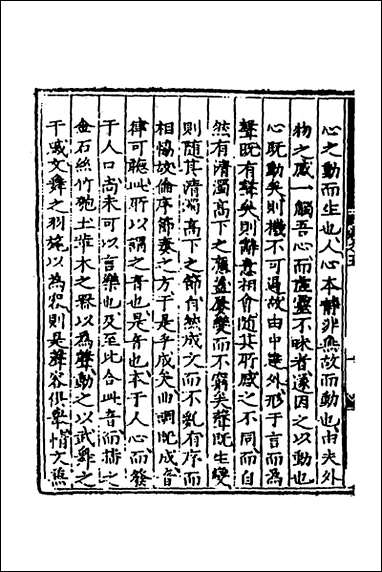 心之動而生也人心本靜非無故而動也由夫外
物之感一觸吾心而虛靈不昧者遂因之以動也
心既動矣則機不可遏故由中達外形于言而為
聲既有聲矣則辭意相會隨其所感之不同而自
然有清濁高下之應迭屢變而不窮矣聲既生變
則隨其清濁高下之節自然成文而不亂有序而
相協故倫序節奏之方于是乎成矣曲調既成音
律可聽此所以謂之音也是音也本于人心而發
于人口尚未可以言樂也及至比合此音而播之
金石絲竹匏土革木之器以為聲動之以武舞之
干戚文舞之羽旄以為容則是聲容俱舉情文兼